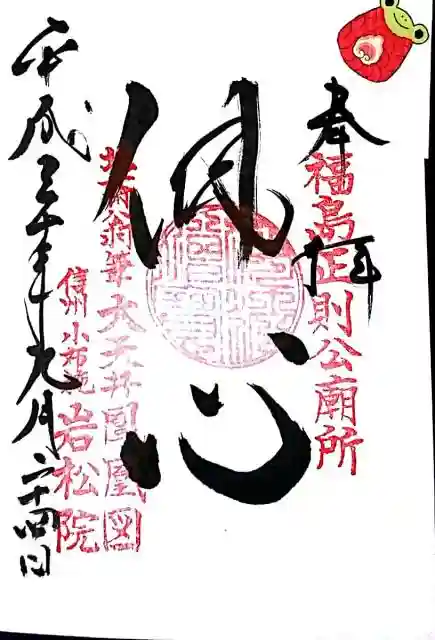 奉拝
福島正則公廟所
佛心
北斎翁筆 大天井鳳凰図
信州小布施 岩松院
平成三十年九月二十四日